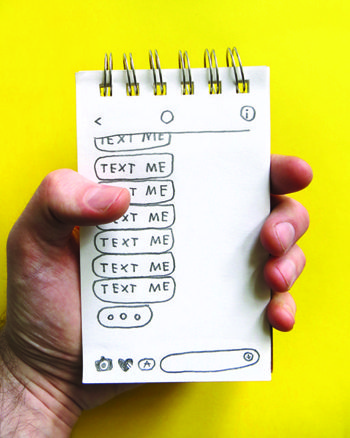 i
TEXT ME
TEXT ME
T ME
TEXT ME
TEXT ME
TEXT ME
TEXT ME
A